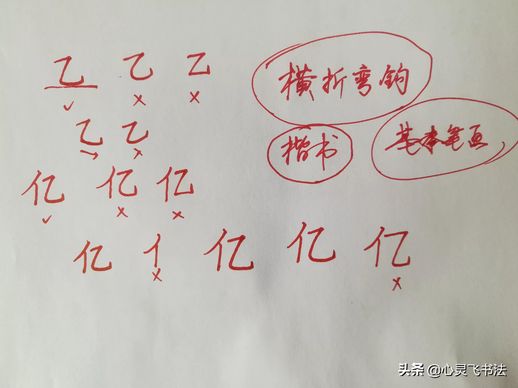 乙 乙 乙 横折弯钩
✓ × ×
乙 乙 楷书 基本笔画,
×
亿 亿 亿
✓ × ×
亿 亻 亿 亿 亿
× ×
头条 @心灵飞书法